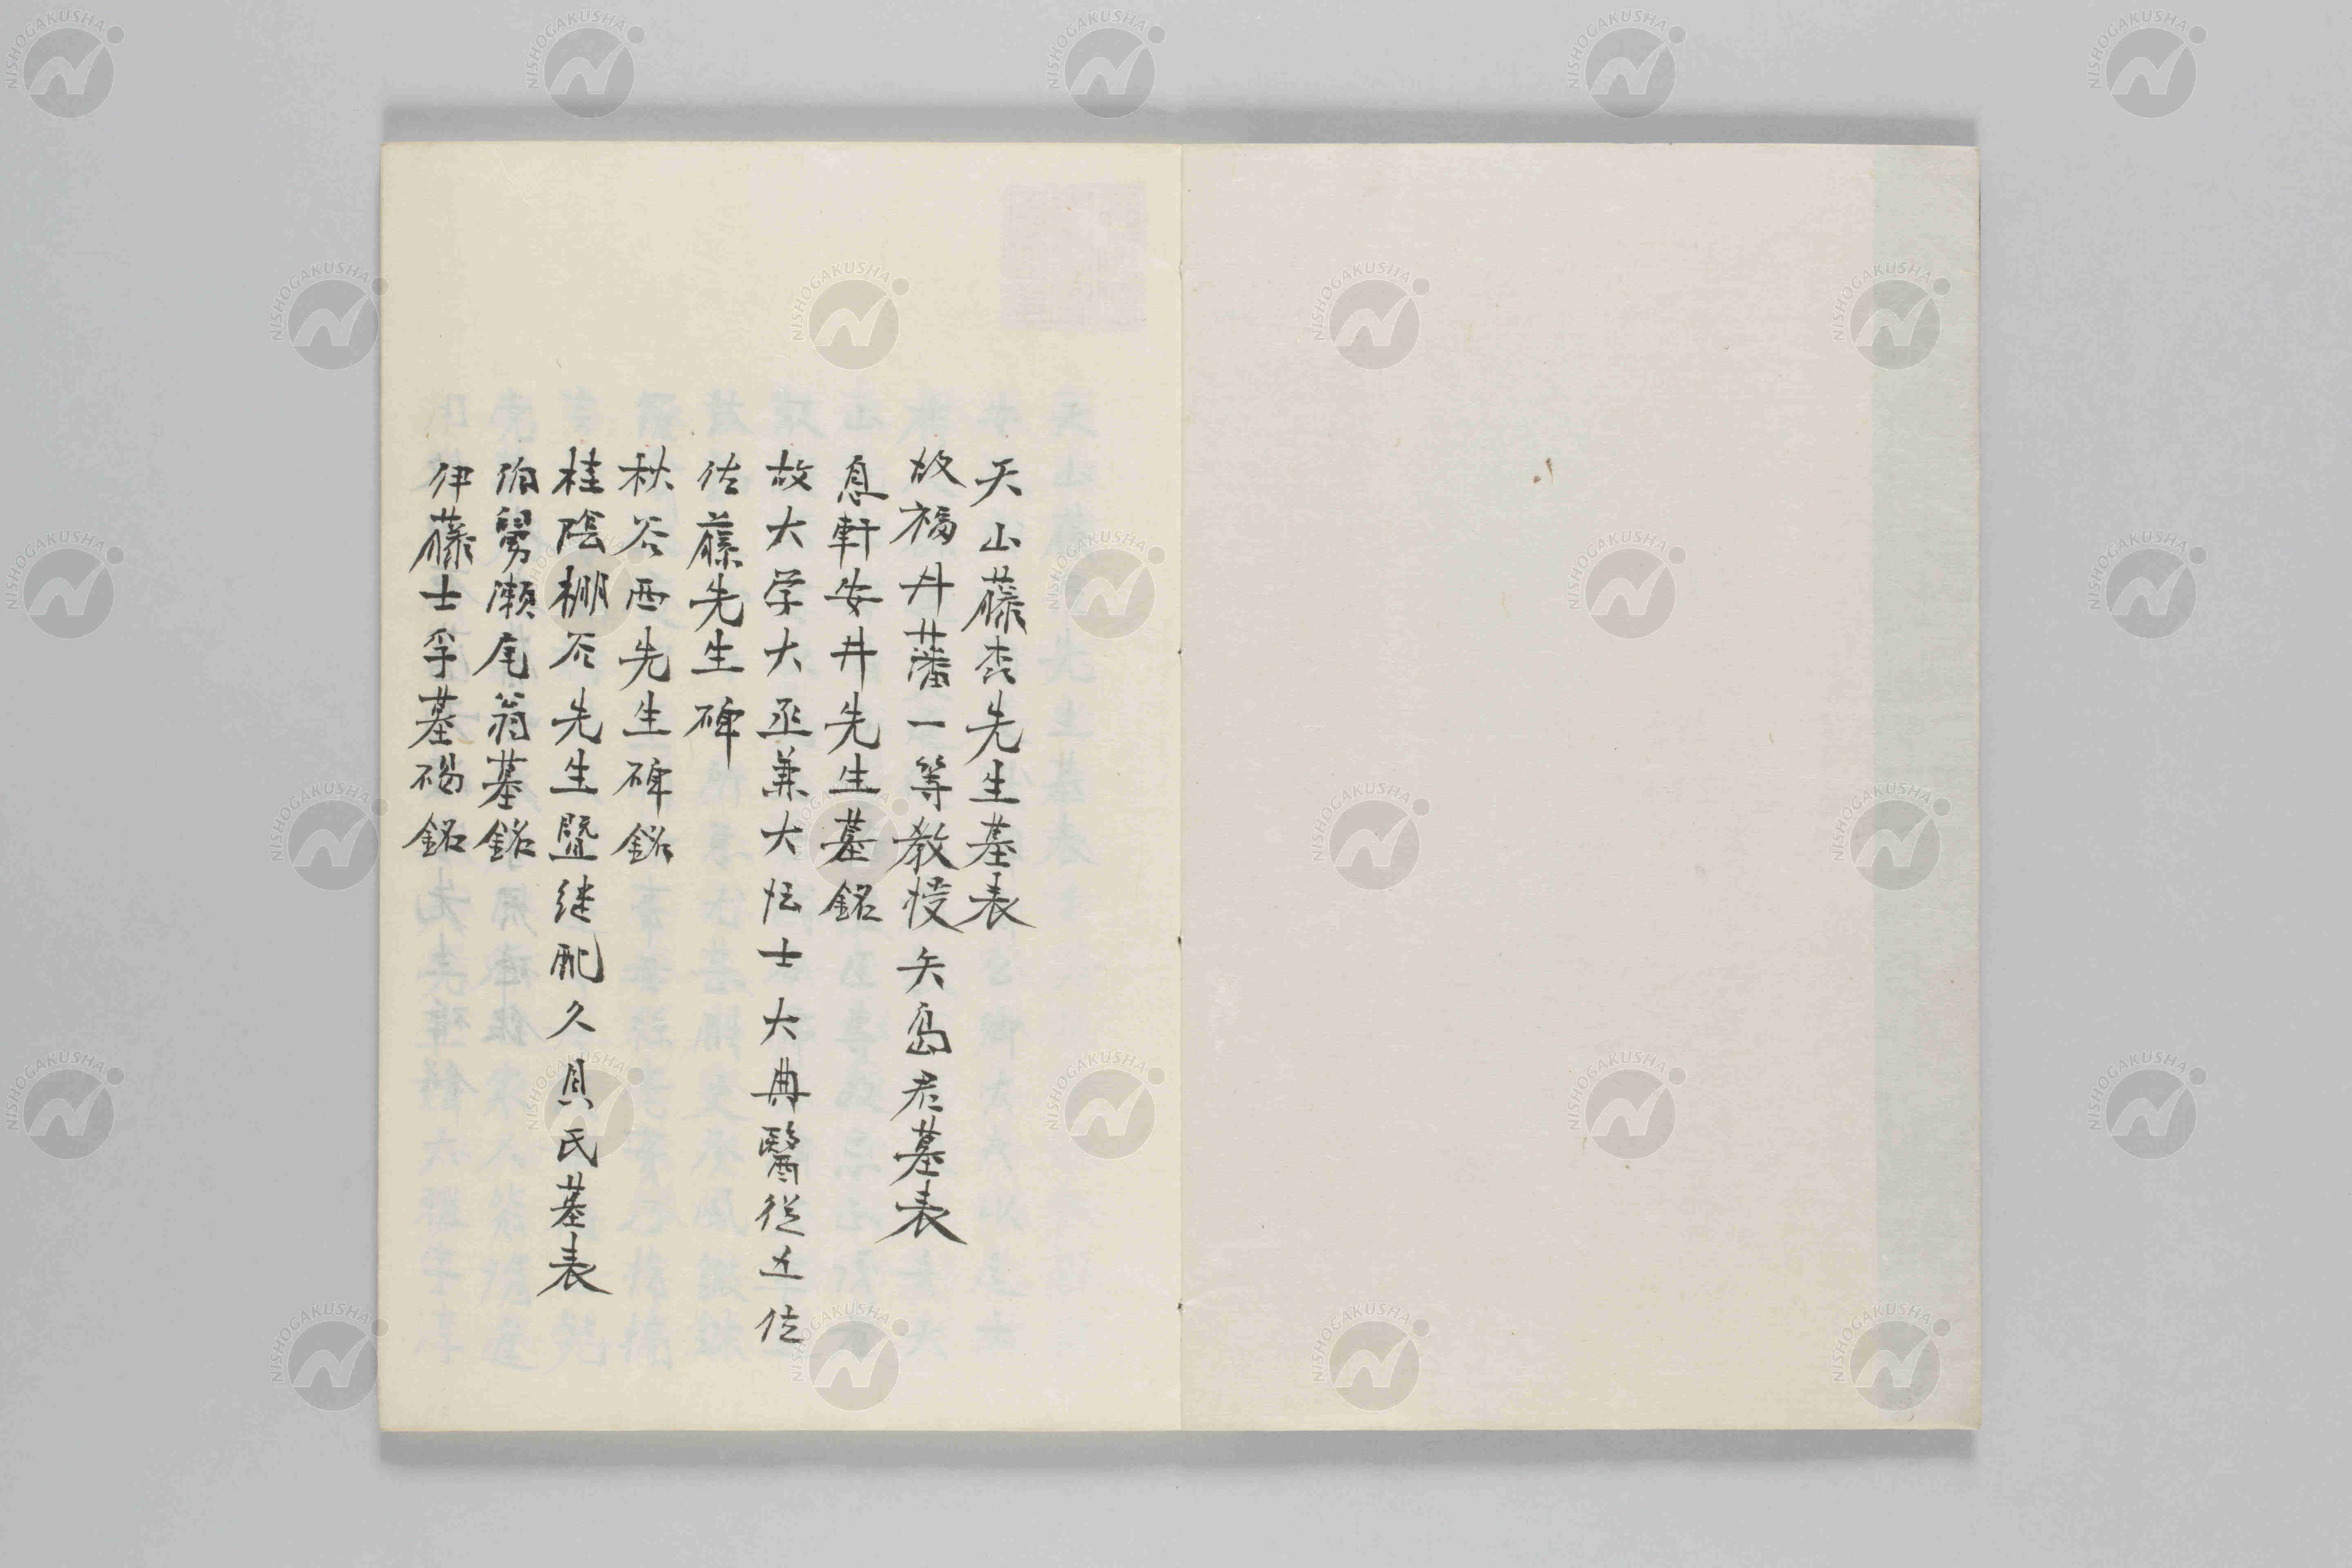 天山藤森先生墓表
故福井藩一等教授矢島君墓表
息軒安井先生墓銘
故大学大丞兼大博士大典醫従五位
佐藤先生碑
秋谷西先生碑銘
桂陰棚谷先生曁継配久貝氏墓表
伯舅瀬尾翁墓銘
伊藤士孚墓碣銘
NISHOGAKUSHA